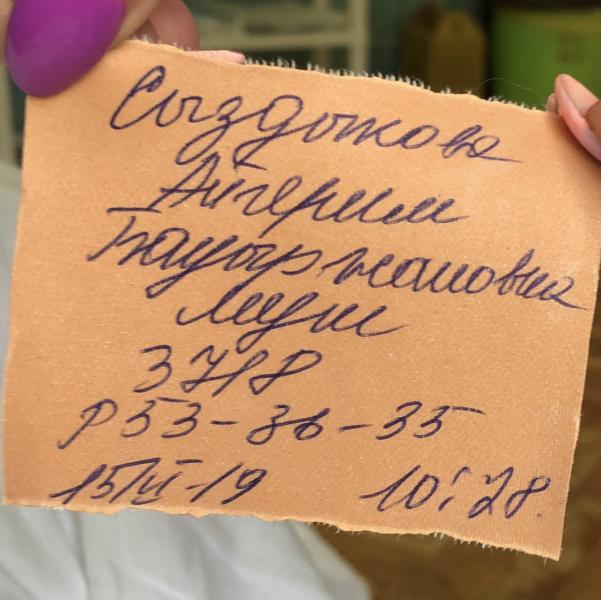 Сыздыкова
Айгерим
Бауыржановна
муж
3718
Р 53-36-35
15/VI-19 10:28